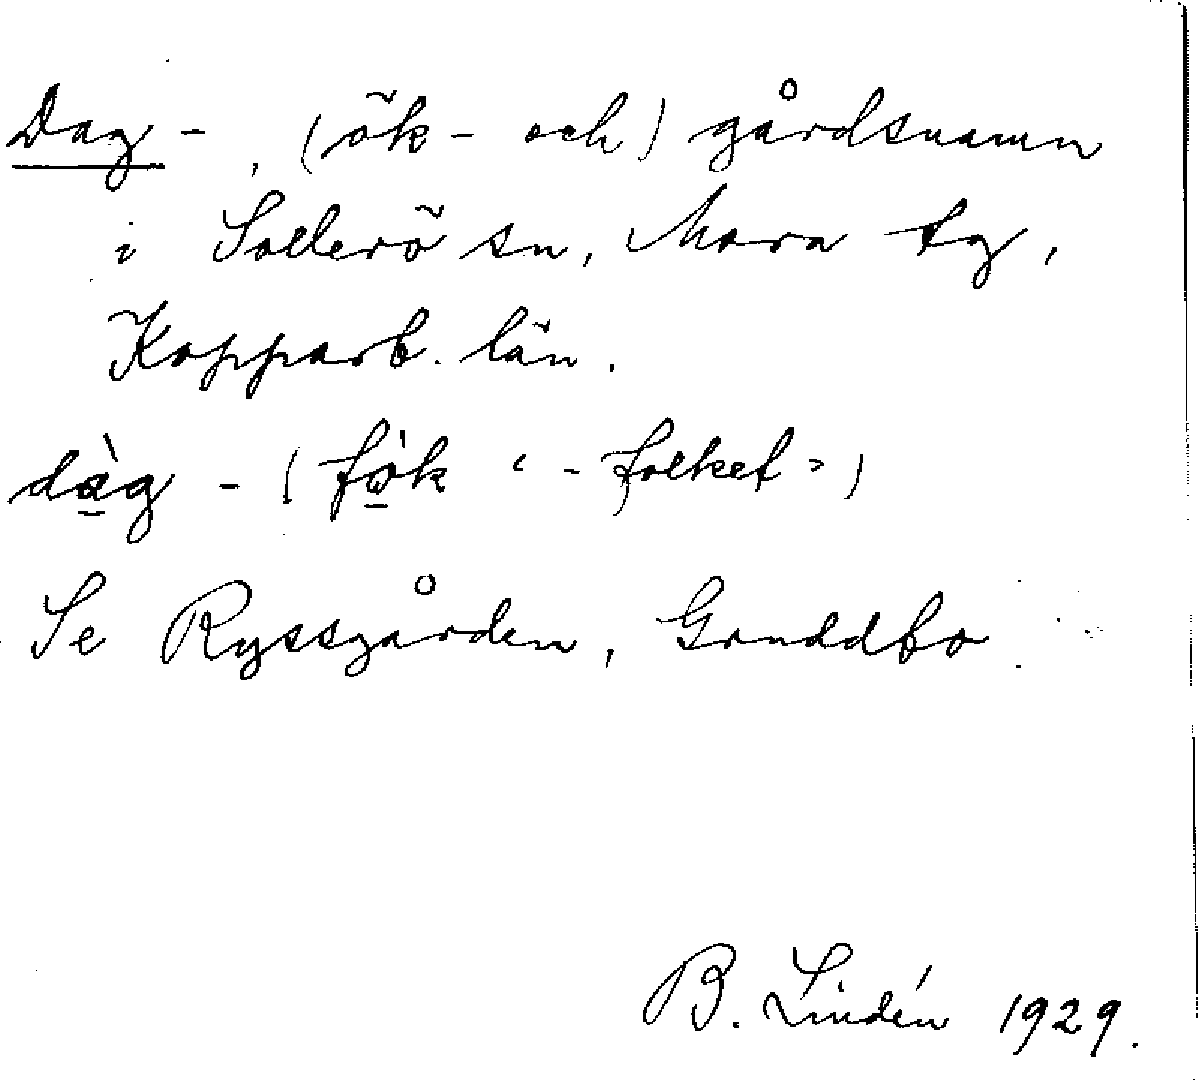 Dag - , (ök - och) gårdsnamn
i Sollerö sn, Mora tg,
Kopparb. län.
då̱g - ( fò̱k ‘ - folket ’ )
Se Ryssgården, Gruddbo
B. Lindén 1929.